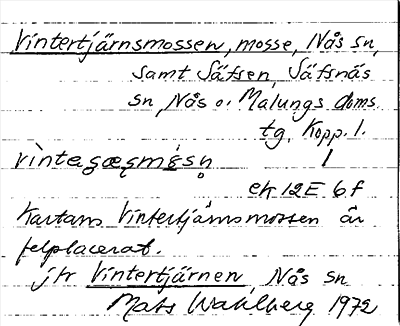 Vintertjärnsmossen, mosse, Nås sn,
samt Säfsen, Säfsnäs
sn, Nås o. Malungs doms.
tg, Kopp. l.
ek 12E 6f
Kartans Vintertjärnsmossen är
felplacerat.
jfr Vintertjärnen, Nås sn
Mats Wahlberg 1972